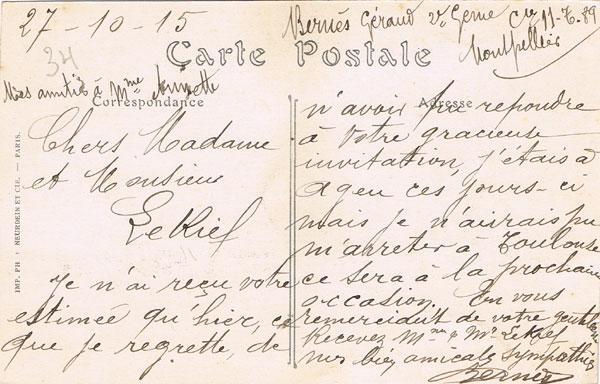 27-10-15
Bernés Géraud 2e Génie Cie 11-T. 89
Montpellier
34
Carte Postale
Mes amitiés à Mme Annette
Correspondance
Adresse
Chers Madame
et Monsieur
Lekief
Je n'ai reçu votre
estimée qu'hier, ce
que je regrette, de
n'avoir pu repondre
à Votre gracieuse
invitation, j'étais à
Agen ces jours-ci
mais je n'airais pu
m'arreter à Toulouse
ce sera à la prochaine
occasion. En vous
remerciant de votre
Recevez Mme & Mr Lekief
mes bien amicales sympathies
Bernés
IMP. PH. NEURDEIN ET CIE. — PARIS.